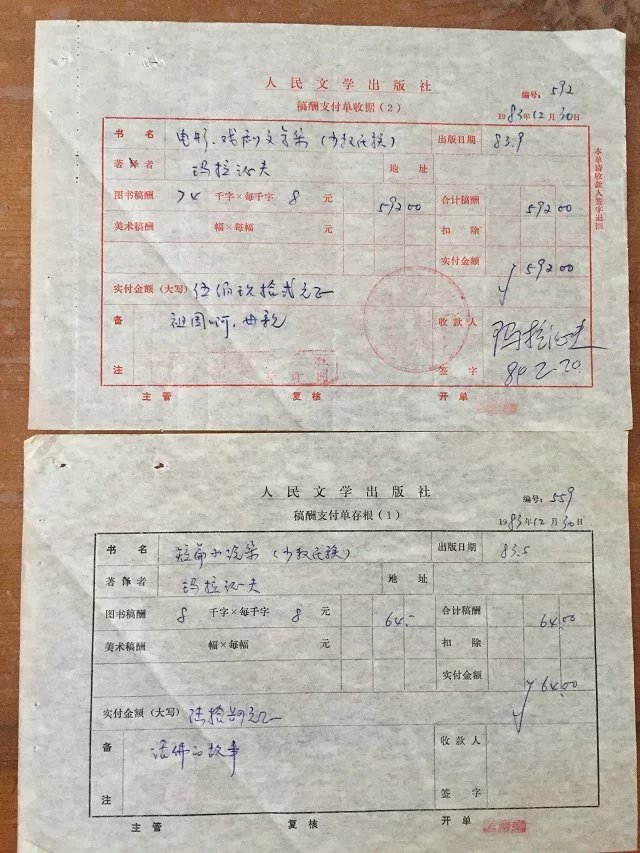 人民文学出版社
编号: 592
稿酬支付单收据(2)
1983年12月30日
书名 电影.戏剧文学集(少数民族) 出版日期 83.9
著译者 玛拉沁夫 地址
图书稿酬 74 千字×每千字 8 元 592 00 合计稿酬 592 00
美术稿酬 幅×每幅 元 扣除
实付金额 ¥592 00
实付金额(大写) 伍佰玖拾贰元正
备注 祖国啊,母亲 收款人签字 玛拉沁夫
84.2.20.
主管 复核 开单
本单请收款人签字退回
人民文学出版社
编号: 559
稿酬支付单存根(1)
1983年12月30日
书名 短篇小说集(少数民族) 出版日期 83.5
著译者 玛拉沁夫 地址
图书稿酬 8 千字×每千字 8 元 64.- 合计稿酬 64.00
美术稿酬 幅×每幅 元 扣除
实付金额 ¥64.00
实付金额(大写) 陆拾肆元正
备注 活佛的故事 收款人签字
主管 复核 开单